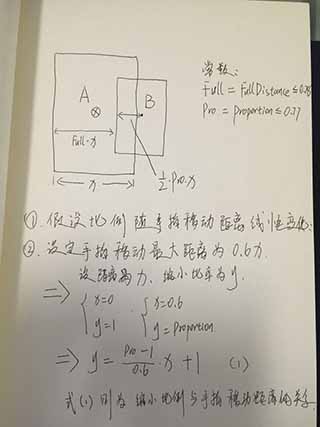 常数:
Full = FullDistance ≤ 0.78
Pro = proportion ≤ 0.77
A
B
Full·x
x
1/2·Pro·x
①. 假设比例随手指移动距离线性变化:
②. 设定手指移动最大距离为0.6力.
设距离为力, 缩小比率为y.
=> { x=0 { x=0.6
y=1 y=Proportion
=> y = Pro-1/0.6 · x + 1 (1)
式(1)则为缩小比例与手指移动距离的关系